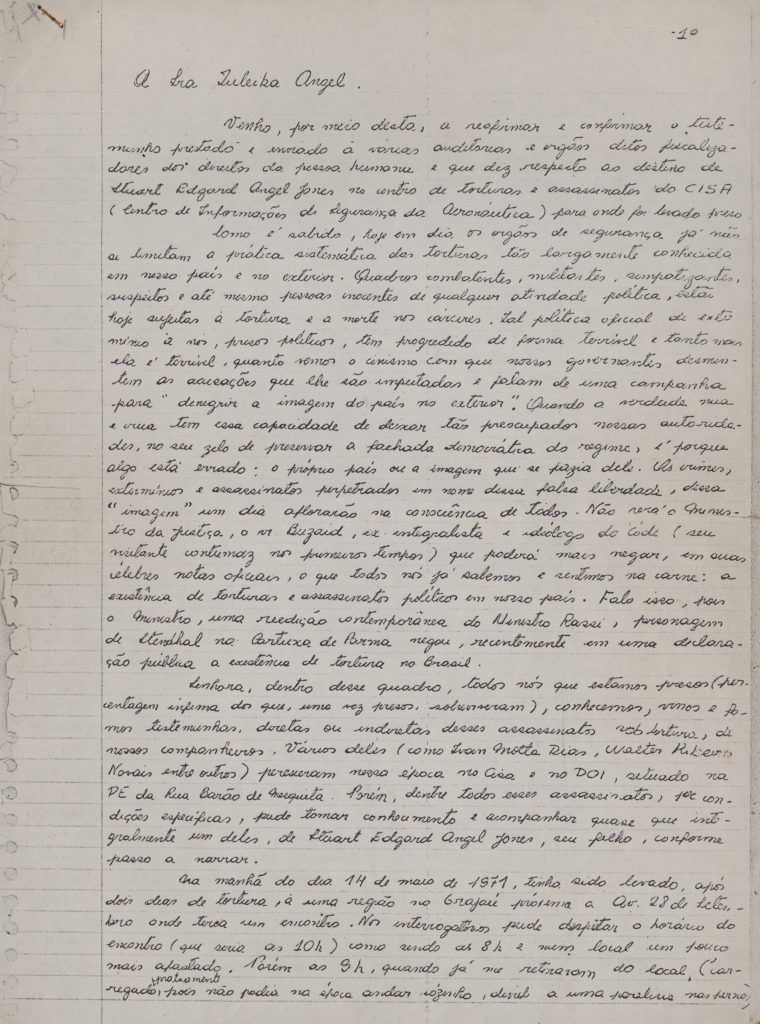 -1º
A Sra Zuleika Angel.
Venho, por meio desta, a reafirmar e confirmar o teste-
munho prestado e enviado à várias auditorias e orgãos ditos fiscaliza-
dores dos direitos da pessoa humana e que diz respeito ao destino de
Stuart Edgard Angel Jones no centro de torturas e assassinatos do CISA
(Centro de Informações de Segurança da Aeronáutica) para onde foi levado preso
Como é sabido, hoje em dia os orgãos de segurança já não
se limitam a prática sistemática das torturas tão largamente conhecida
em nosso país e no exterior. Quadros combatentes, militantes, simpatizantes,
suspeitos e até mesmo pessoas inocentes de qualquer atividade política, estão
hoje sujeitas à tortura e a morte nos cárceres. Tal política oficial de exter
mínio à nós, presos políticos, tem progredido de forma terrível e tanto mais
ela é terrível, quanto vemos o cinismo com que nossos governantes desmen-
tem as acusações que lhe são imputadas e falam de uma campanha
para "denegrir a imagem do país no exterior". Quando a verdade nua
e crua tem essa capacidade de deixar tão preocupados nossas autorida-
des, no seu zelo de preservar a fachada democrática do regime, é porque
algo está errado: o próprio país ou a imagem que se fazia dele. Os crimes,
extermínios e assassinatos perpetrados em nome dessa falsa liberdade, dessa
"imagem" um dia aflorarão na consciência de todos. Não será o Minis-
tro da Justiça, o sr. Buzaid, ex-integralista e ideólogo do Code (seu
militante contumaz nos primeiros tempos) que poderá mais negar, em suas
célebres notas oficiais, o que todos nós já sabemos e sentimos na carne: a
existência de torturas e assassinatos políticos em nosso país. Falo isso, pois
o Ministro, uma reedição contemporânea do Ministro Rassi, personagem
de Stendhal na Cartuxa de Parma negou, recentemente em uma declara-
ção pública a existência de tortura no Brasil.
Senhora, dentro desse quadro, todos nós que estamos presos (per-
centagem ínfima dos que, uma vez presos, sobreviveram), conhecemos, vimos e fo-
mos testemunhas, diretas ou indiretas desses assassinatos sob tortura, de
nossos companheiros. Vários deles (como Ivan Motta Dias, Walter Ribeiro
Novais entre outros) pereceram nessa época no Cisa e no DOI, situado na
PE da Rua Barão de Mesquita. Porém, dentre todos esses assassinatos, por con-
dições específicas, pude tomar conhecimento e acompanhar quase que inte-
gralmente um deles, de Stuart Edgard Angel Jones, seu filho, conforme
passo a narrar.
Na manhã do dia 14 de maio de 1971, tinha sido levado, após
dois dias de tortura, à uma região no Grajaú próxima a Av. 28 de Setem-
bro onde teria um encontro. Nos interrogatórios pude despistar o horário do
encontro (que seria as 10h) como sendo as 8h e num local um pouco
mais afastado. Porém as 9h, quando já me retiravam do local, (car-
regado praticamente, pois não podia na época andar sózinho, devido a uma paralisia nas pernas